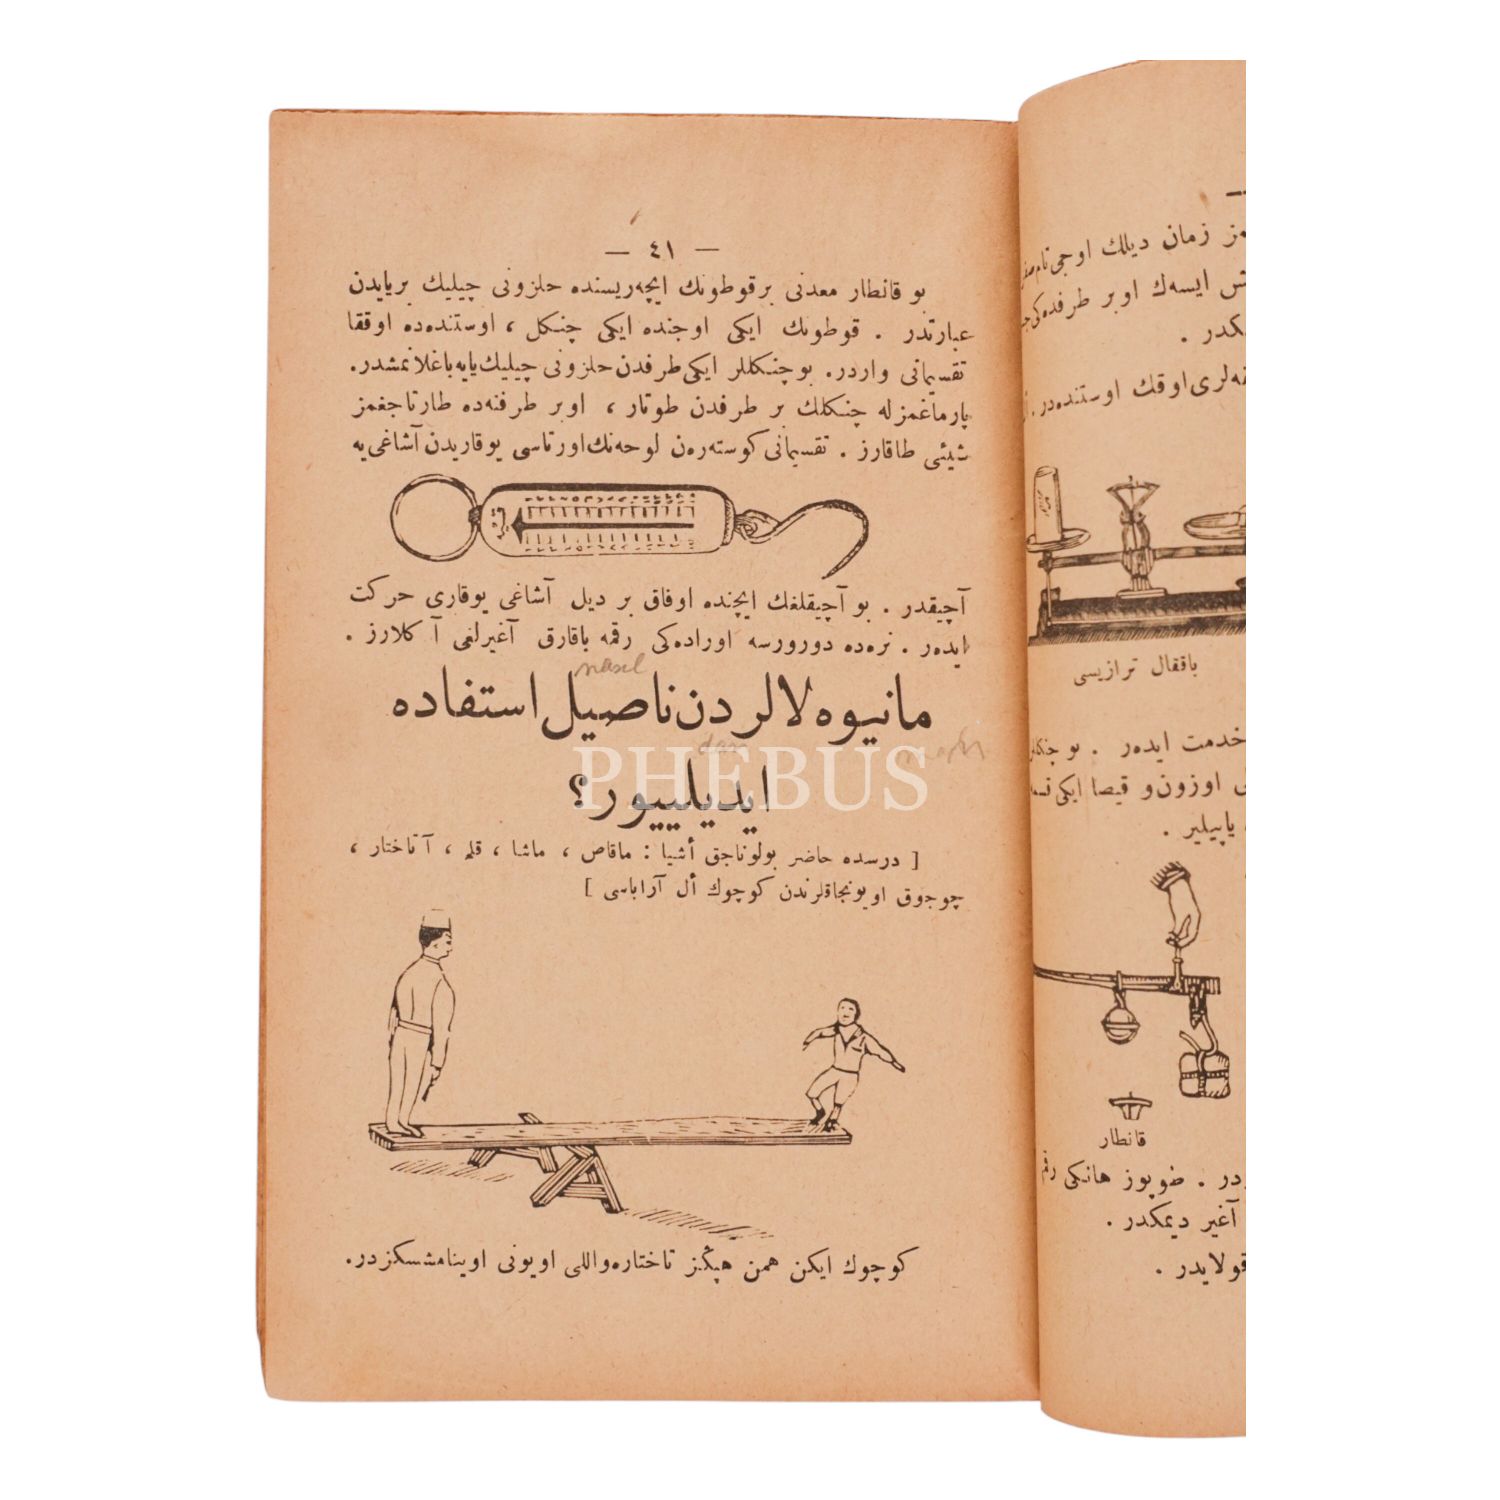 — ٤١ —
بو قانطار معدنی بر قوطونك ایچه‌ریسنده حلزونی چیلیك بر یایدن
عبارتدر . قوطونك ایکی اوجنده ایکی چنکل ، اوستنده‌ده اوققا
تقسیماتی واردر. بو چنکللر ایکی طرفدن حلزونی چیلیك یایه باغلانمشدر.
پارماغمزله چنکلك بر طرفدن طوتار ، اوبر طرفنه‌ده طارتاجغمز
شیئی طاقارز . تقسیماتی کوسته‌رەن لوحه‌نك اورتاسی یوقاریدن آشاغی‌یه
آچیقدر . بو آچیقلغك ایچنده اوفاق بر دیل آشاغی یوقاری حرکت
ایده‌ر . نره‌ده دورورسه اوراده‌کی رقمه باقارق آغیرلغی آ کلارز .
nasıl
مانیوه‌لالردن ناصیل استفاده
dan
PHEBUS
ایدیلییور؟
[ درسده حاضر بولوناجق أشیا : ماقاص ، ماشا ، قلم ، آناختار ،
چوجوق اویونجاقلرندن کوچوك أل آراباسی ]
کوچوك ایکن همن هپکز تاختاره‌واللی اویونی اوینامشسکزدر.
زمان دیلك اوجی تام
ایسه‌ك اوبر طرفده‌کی
اوقك اوستنده‌در.
باققال ترازیسی
خدمت ایده‌ر . بو
اوزون و قیصا ایکی
یاپیلیر .
قانطار
در . طوپوز هانکی رقم
آغیر دیمکدر .
قولایدر .